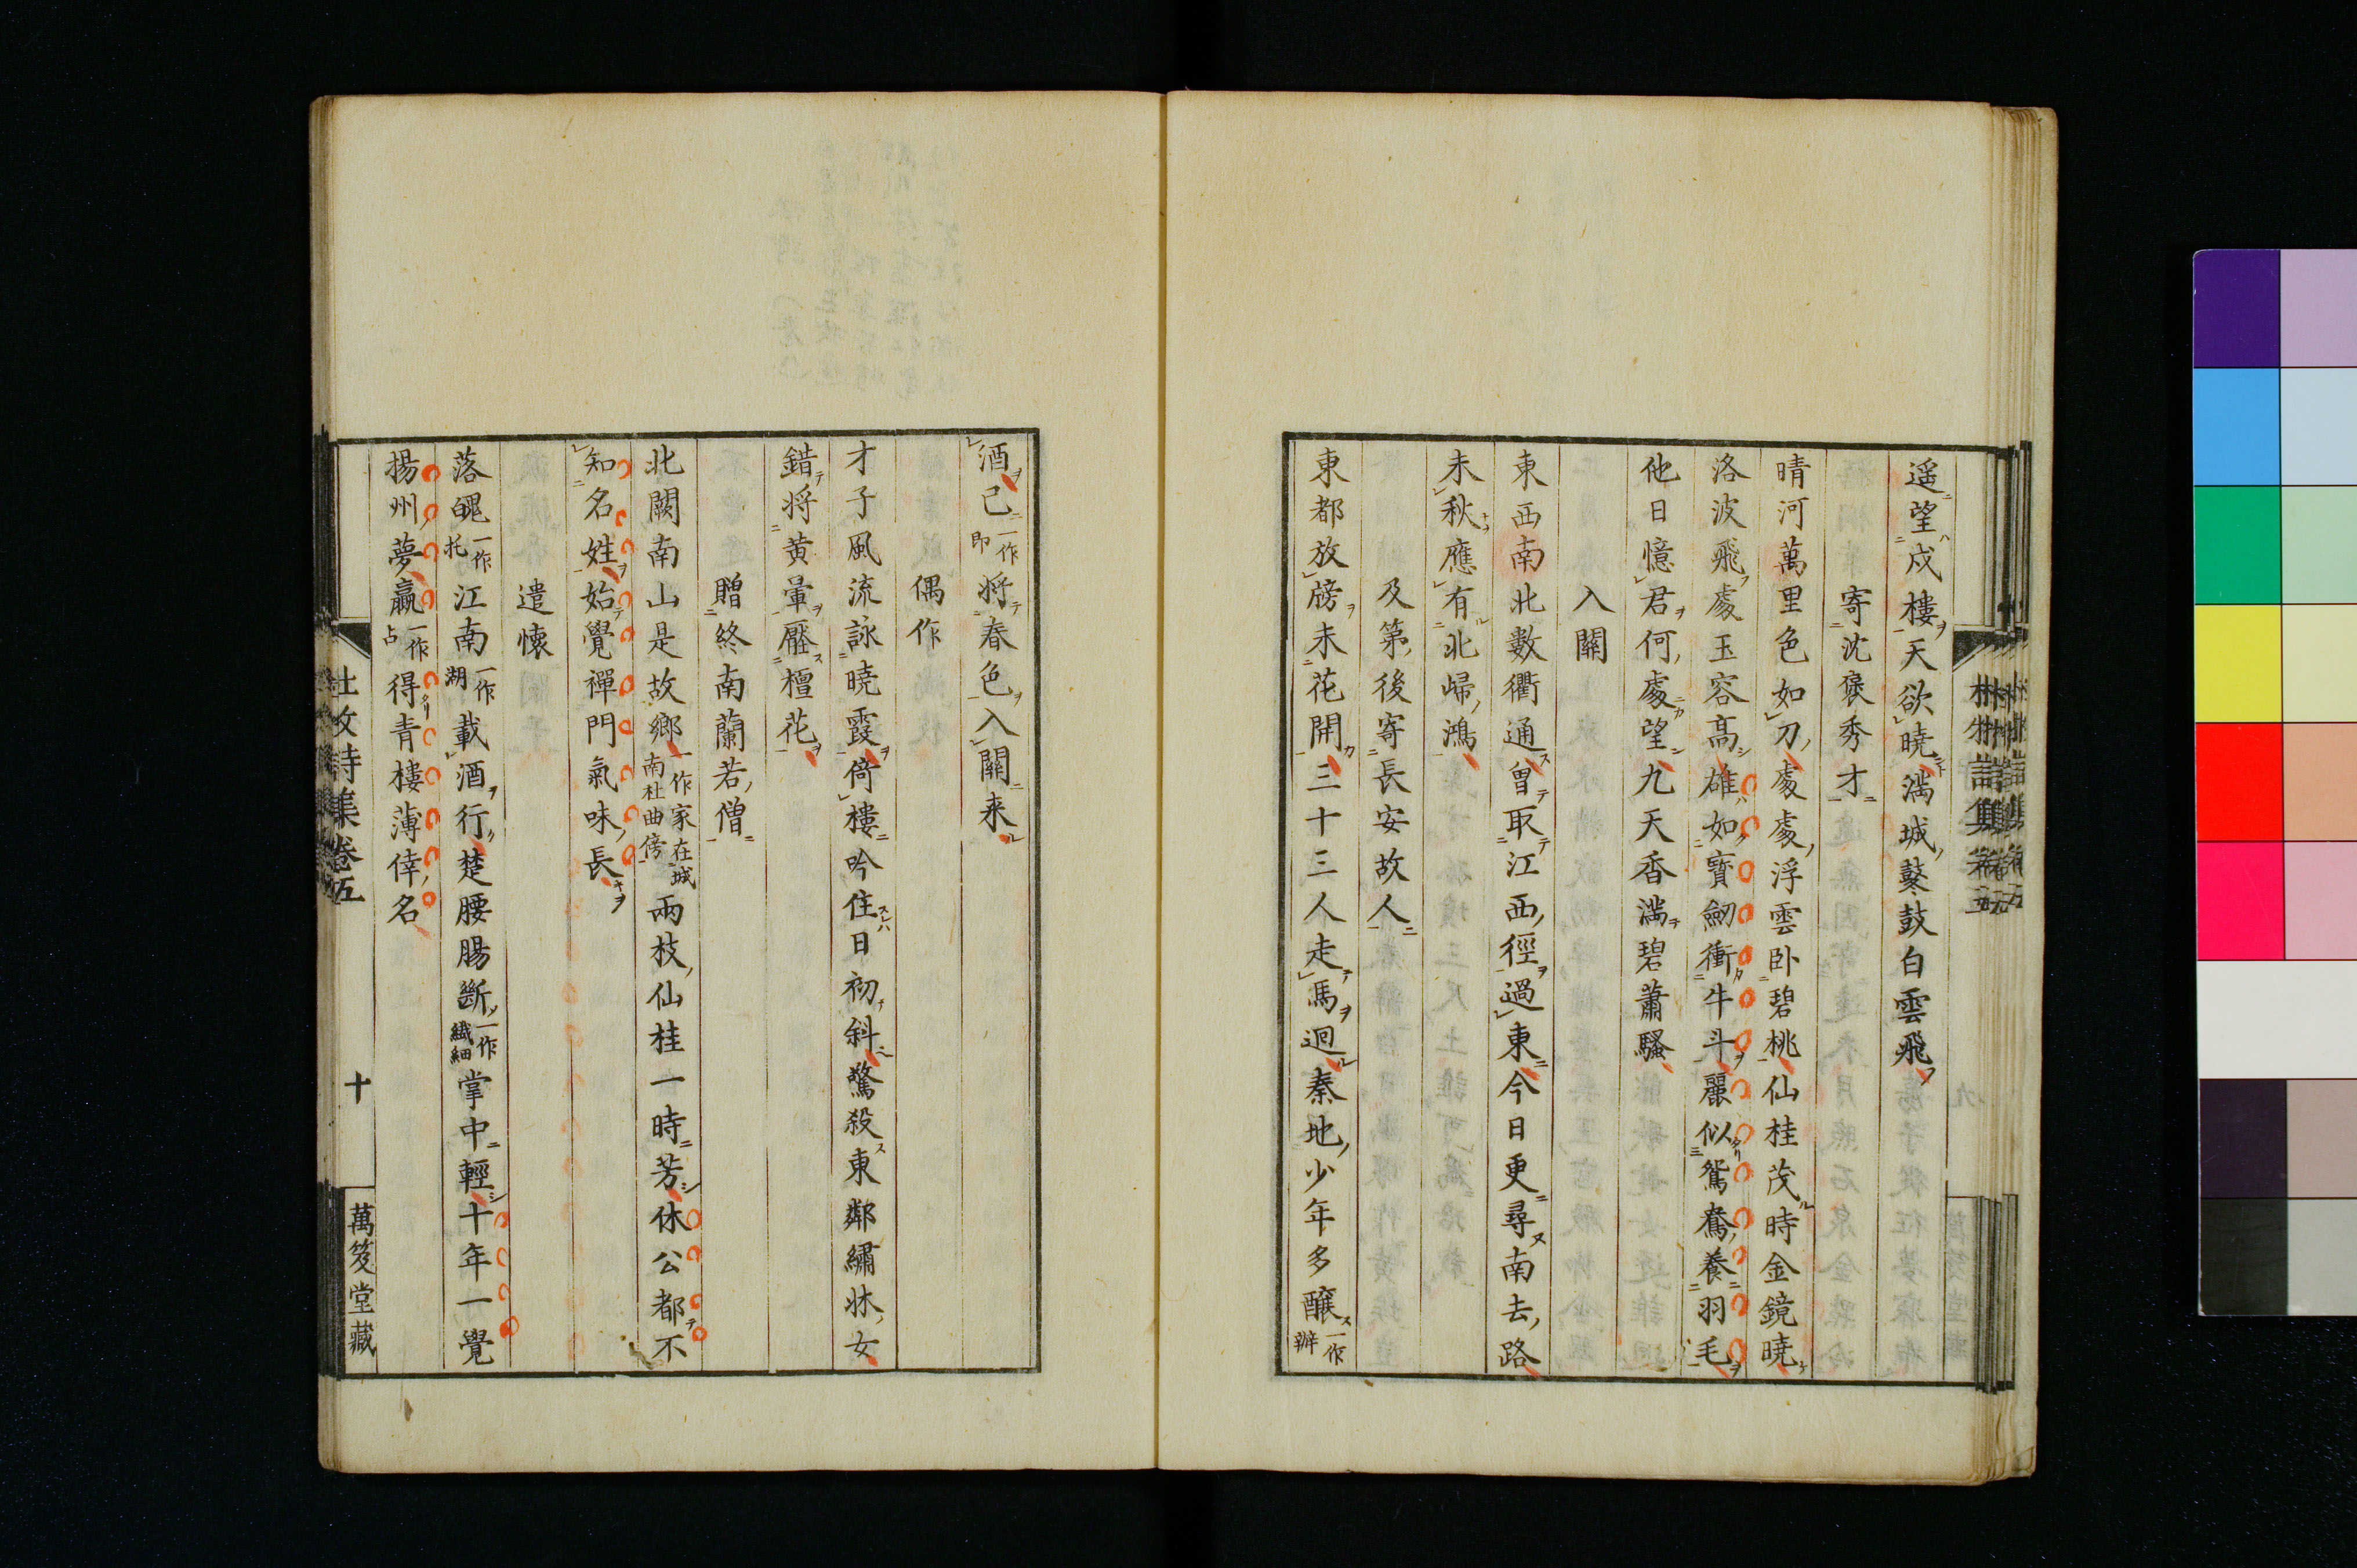 遥望戍樓天欲曉滿城鼕鼓白雲飛
寄沈褒秀才
晴河萬里色如刀處處浮雲卧碧桃仙桂茂時金鏡曉
洛波飛處玉容高雄如寶劒衝牛斗麗似鴛鴦養羽毛
他日憶君何處望九天香滿碧蕭騷
入關
東西南北數衢通曾取江西徑過東今日更尋南去路
未秋應有北歸鴻
及第後寄長安故人
東都放牓未花開三十三人走馬迴秦地少年多釀一作辦
酒已一作即將春色入關來
偶作
才子風流詠曉霞倚樓吟住日初斜驚殺東鄰繡牀女
錯將黃暈壓檀花
贈終南蘭若僧
北闕南山是故鄉一作家在城南杜曲傍兩枝仙桂一時芳休公都不
知名姓始覺禪門氣味長
遣懷
落魄一作托江南一作湖載酒行楚腰腸斷一作纖細掌中輕十年一覺
揚州夢贏一作占得青樓薄倖名
杜牧詩集卷五
十
萬笈堂藏